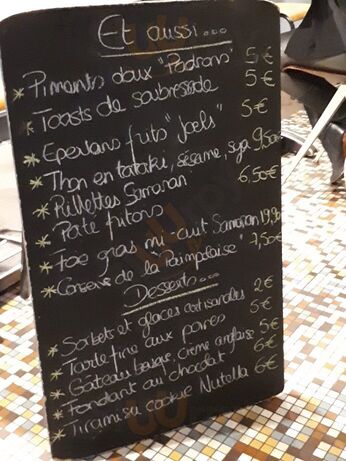 Et aussi...
* Piments doux "Padrons" 5€
* Toasts de soubressade 5€
* Eperlans frits "Joels" 5€
* Thon en tataki, sésame, soja 9,50€
* Rillettes Samaran 6,50€
* Paté
* foe gras mi-cuit Samaran 19,90
* Conserve de la "Paimpolaise" 7,50€
Desserts...
* Sorbets et glaces artisanales 2€
* Tarte fine aux poires 5€
* Gateau basque, crème anglaise 5€
* Fondant au chocolat 6€
* Tiramisu cookie Nutella 6€